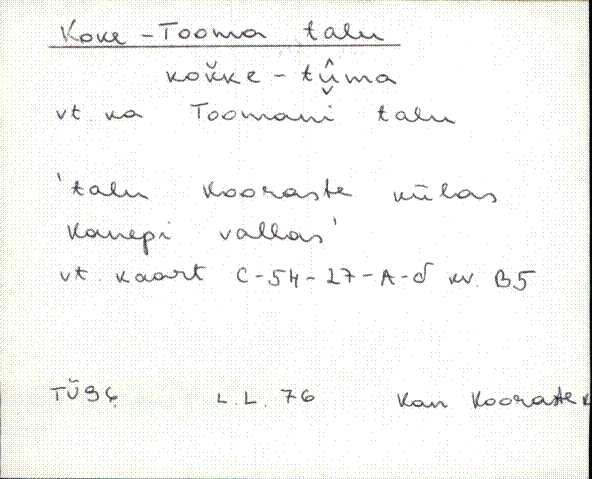 Koke-Tooma talu
kok̆ke-tû̬ma
vt ka Toomani talu
'talu Kooraste külas
Kanepi vallas'
vt. kaart C-54-27-A-d kv. B5
TÜ L.L. 76 Kan Kooraste k